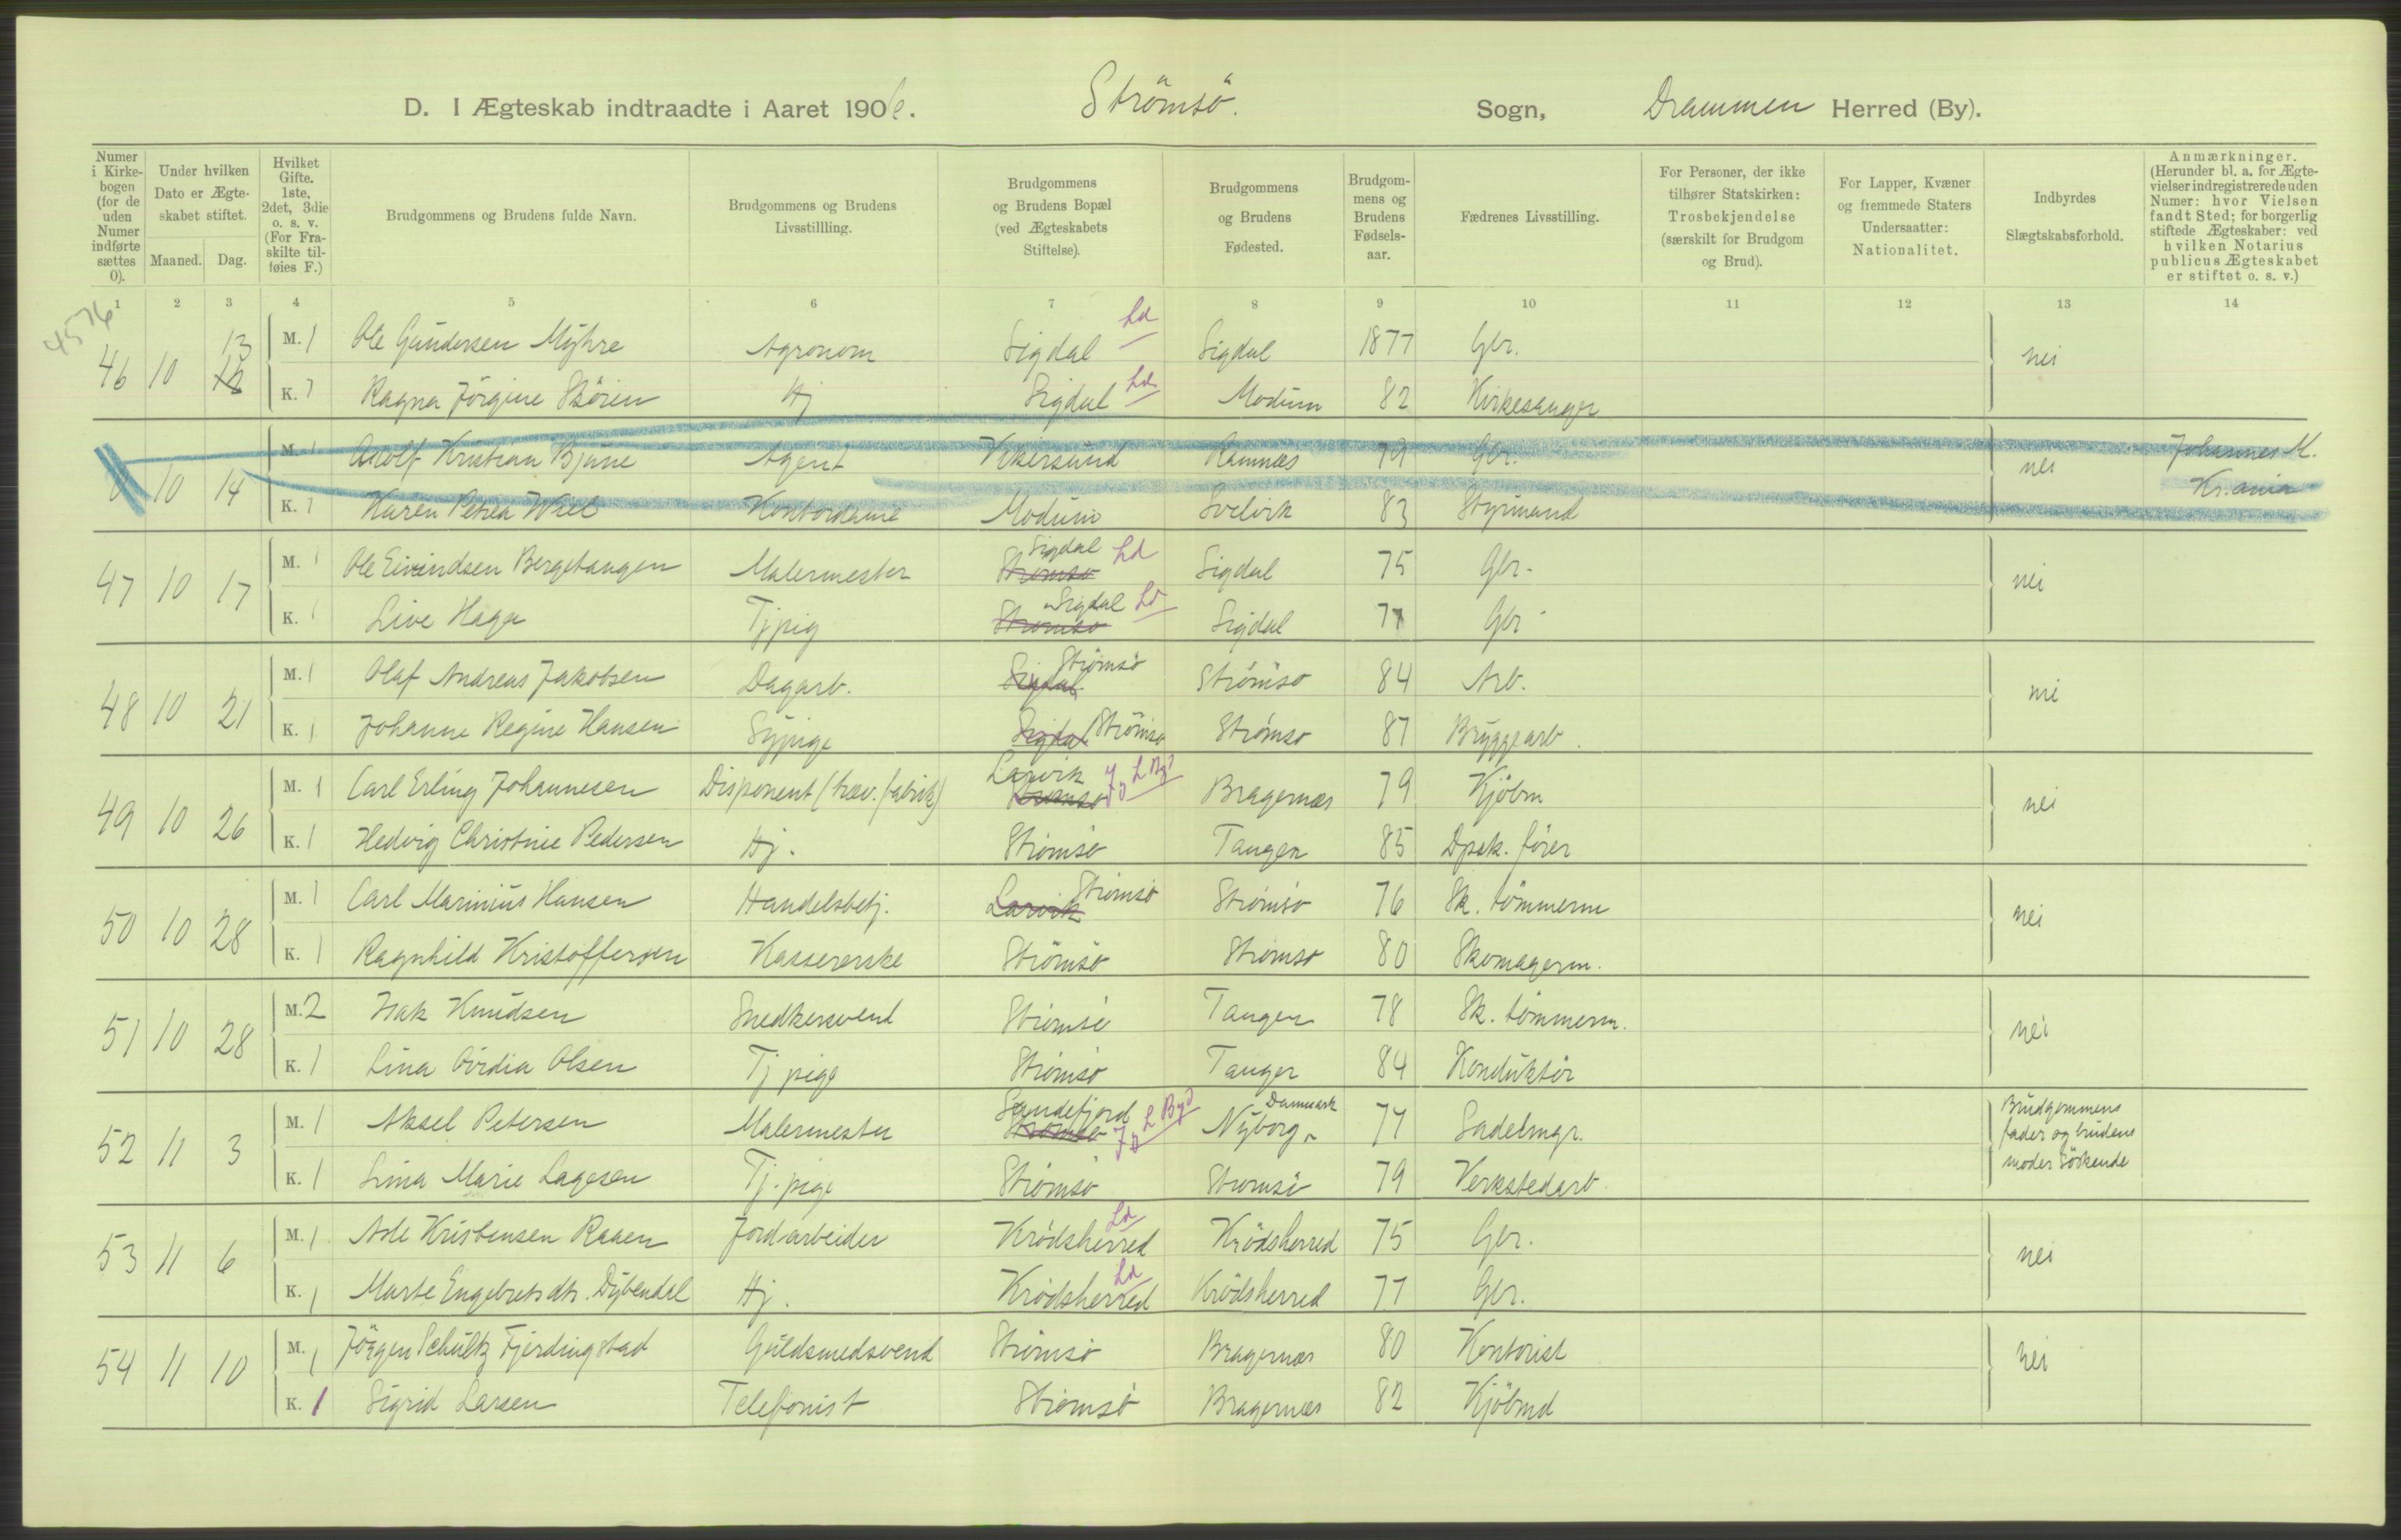 D. I Ægteskab indtraadte i Aaret 1906. Strömsö. Sogn, Drammen Herred (By).
Numer i Kirkebogen (for de uden Numer indførte sættes 0).
Under hvilken Dato er Ægteskabet stiftet. Maaned. Dag.
Hvilket Gifte. 1ste, 2det, 3die o. s. v. (For Fraskilte tilføies F.)
Brudgommens og Brudens fulde Navn.
Brudgommens og Brudens Livsstillling.
Brudgommens og Brudens Bopæl (ved Ægteskabets Stiftelse).
Brudgommens og Brudens Fødested.
Brudgommens og Brudens Fødselsaar.
Fædrenes Livsstilling.
For Personer, der ikke tilhører Statskirken: Trosbekjendelse (særskilt for Brudgom og Brud).
For Lapper, Kvæner og fremmede Staters Undersaatter: Nationalitet.
Indbyrdes Slægtskabsforhold.
Anmærkninger. (Herunder bl. a. for Ægtevielser indregistrerede uden Numer: hvor Vielsen fandt Sted; for borgerlig stiftede Ægteskaber: ved hvilken Notarius publicus Ægteskabet er stiftet o. s. v.)
1 2 3 4 5 6 7 8 9 10 11 12 13 14
4576
46 10 13 12 M. 1 Ole Gundersen Myhre Agronom Sigdal Ld Sigdal 1877 Gbr. nei
K. 1 Ragna Jörgine Skören Hj Sigdal Ld Modum 82 Kirkesanger
0 10 14 M. 1 Arolf Kristian Bjune Agent Vikersund Ramnæs 79 Gbr. nei Johannes M.
K. 1 Karen Petrea Wiel Kontordame Modum Svelvik 83 Styrmand Kr.ania
47 10 17 M. 1 Ole Eivindsen Bergetangen Malermester Strömsö Sigdal Ld Sigdal 75 Gbr. nei
K. 1 Live Haga Tjpig Strömsö Sigdal Ld Sigdal 77 Gbr
48 10 21 M. 1 Olaf Andreas Jakobsen Dagarb. Sigdal Strömsö Strömsö 84 Arb. nei
K. 1 Johanne Regine Hansen Sypige Sigdal Strömsö Strömsö 87 Bryggearb.
49 10 26 M. 1 Carl Erling Johannesen Disponent (træv. fabrik) Strömsö Larvik L Byd Bragernæs 79 Kjöbm nei
K. 1 Hedvig Christine Pedersen Hj. Strömsö Tangen 85 Dpsk. förer
50 10 28 M. 1 Carl Marinius Hansen Handelsbetj. Larvik Strömsö Strömsö 76 Sk. tömmerm nei
K. 1 Ragnhild Kristoffersen Kassererske Strömsö Strömsö 80 Skomagerm.
51 10 28 M. 2 Isak Knudsen Snedkersvend Strömsö Tangen 78 Sk. tömmerm. nei
K. 1 Lina Ovidia Olsen Tj pige Strömsö Tangen 84 Konduktör
52 11 3 M. 1 Aksel Petersen Malermester Strömsö Sandefjord L Byd Nyborg, Danmark 77 Sadelmgr. Brudgommens fader og brudens moder Söskende
K. 1 Lina Marie Lagesen Tj. pige Strömsö Strömsö 79 Verkstedarb.
53 11 6 M. 1 Asle Kristensen Raaen Jordarbeider Krödsherred Ld Krödsherred 75 Gbr. nei
K. 1 Marte Engebretsdtr. Dybendal Hj. Krödsherred Ld Krödsherred 77 Gbr.
54 11 10 M. 1 Jörgen Schultz Fjerdingstad Guldsmedsvend Strömsö Bragernæs 80 Kontorist nei
K. 1 Sigrid Larsen Telefonist Strömsö Bragernæs 82 Kjöbmd